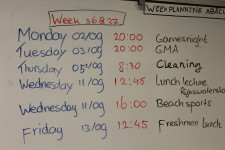 WEEKPLANNING ABAC
Week 36 & 37
Monday 02/09 20:00 Gamesnight
Tuesday 03/09 20:00 GMA
Thursday 05/09 8:30 Cleaning
Wednesday 11/09 12:45 Lunch lecture
Rijkswaterstaat
Wednesday 11/09 16:00 Beach sports
Friday 13/09 12:45 Freshmen lunch